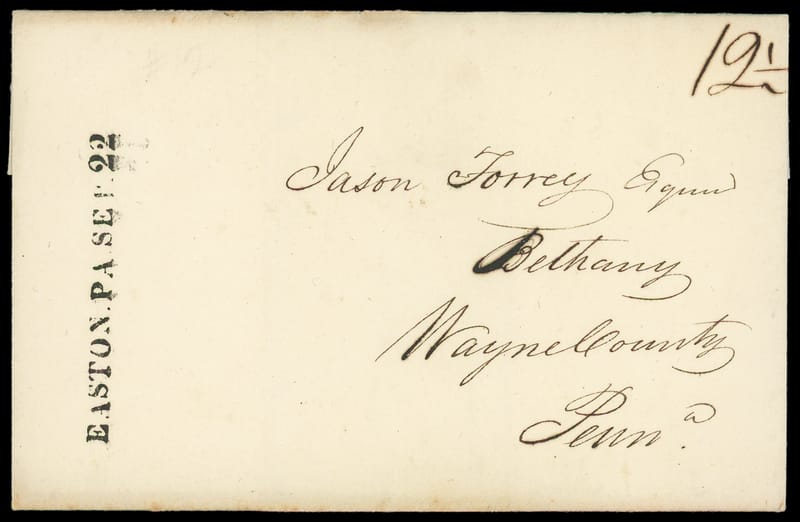 12½
Jason Torrey Esquire
Bethany
Wayne County
Penn.ª
EASTON.PA SEP 22